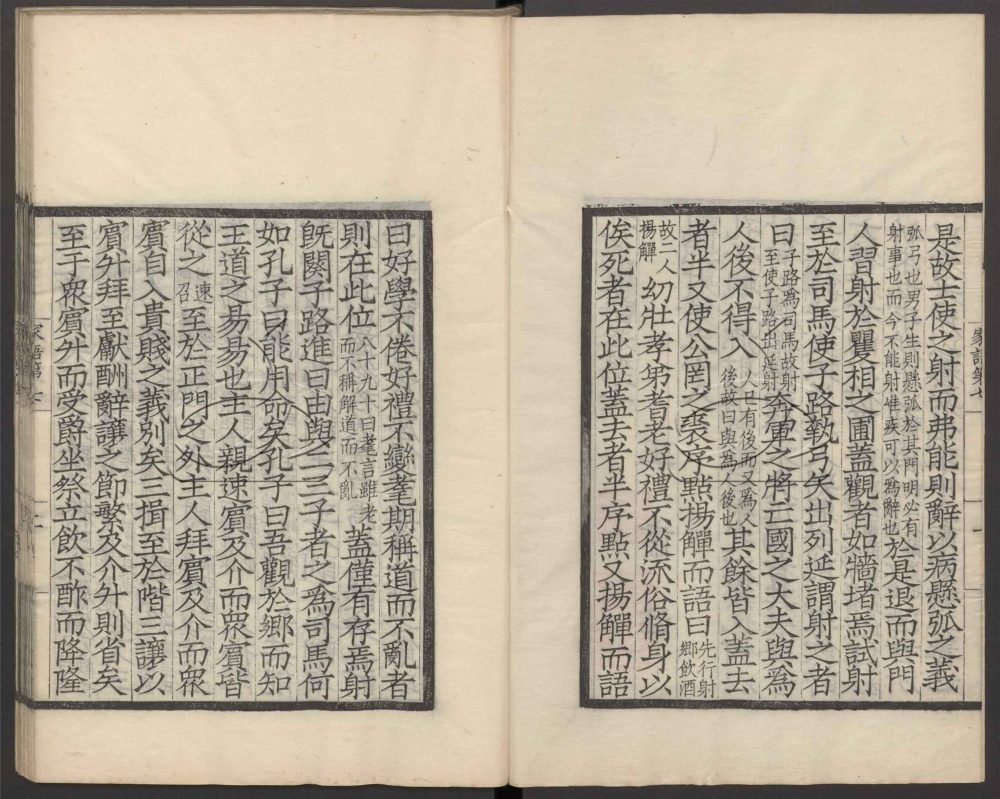 是故士使之射而弗能則辭以病懸弧之義
弧弓也男子生則懸弧於其門明必有
射事也而今不能射唯疾可以為辭也
於是退而與門
人習射於矍相之圃蓋觀者如牆堵焉試射
至於司馬使子路執弓矢出列延謂射之者
曰
子路為司馬故射
至使子路出延射
奔軍之將亡國之大夫與為
人後不得入
人已有後而又為人
後故曰與為人後也
其餘皆入蓋去
者半又使公罔之裘序點揚觶而語曰
先行射
鄉飲酒
故二人
揚觶
幼壯孝弟者老好禮不從流俗脩身以
俟死者在此位蓋去者半序點又揚觶而語
家語第七
曰好學不倦好禮不變耄期稱道而不亂者
則在此位
八十九十曰耄言雖老
而不稱解道而不亂
蓋僅有存焉射
旣闋子路進曰由與二三子者之為司馬何
如孔子曰能用命矣孔子曰吾觀於鄉而知
王道之易易也主人親速賓及介而眾賓皆
從之
速
召
至於正門之外主人拜賓及介而眾
賓自入貴賤之義別矣三揖至於階三讓以
賓升拜至獻酬辭讓之節繁及介升則省矣
至于眾賓升而受爵坐祭立飲不酢而降隆
家語第七